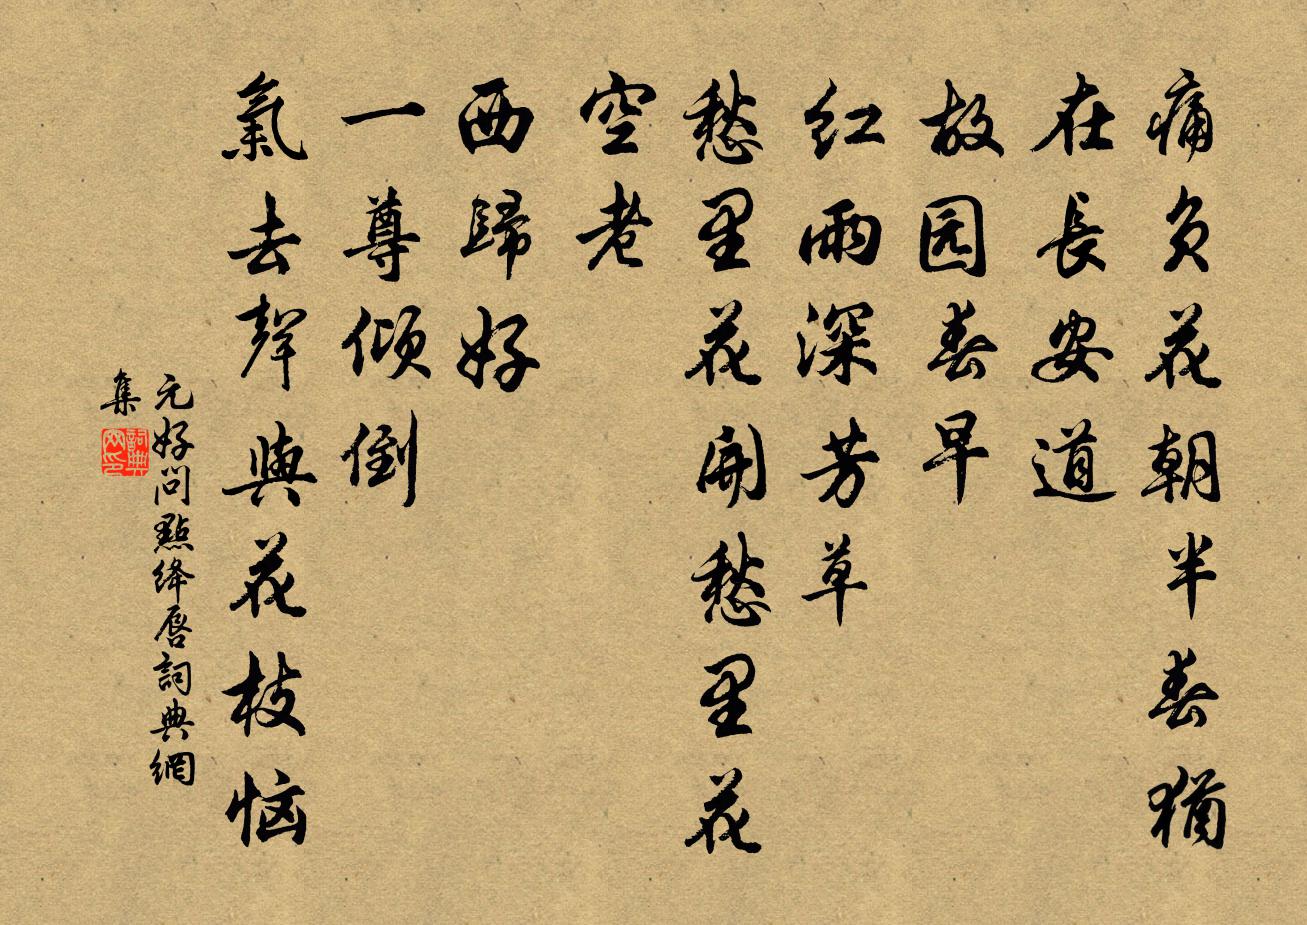 痛负花朝半春猶
在長安道
故园春早
红雨深芳草
愁里花開愁里花
空老
西歸好
一尊倾倒
氣去聲與花枝恼
元好問點绛唇詞典網
集
詞典
网印